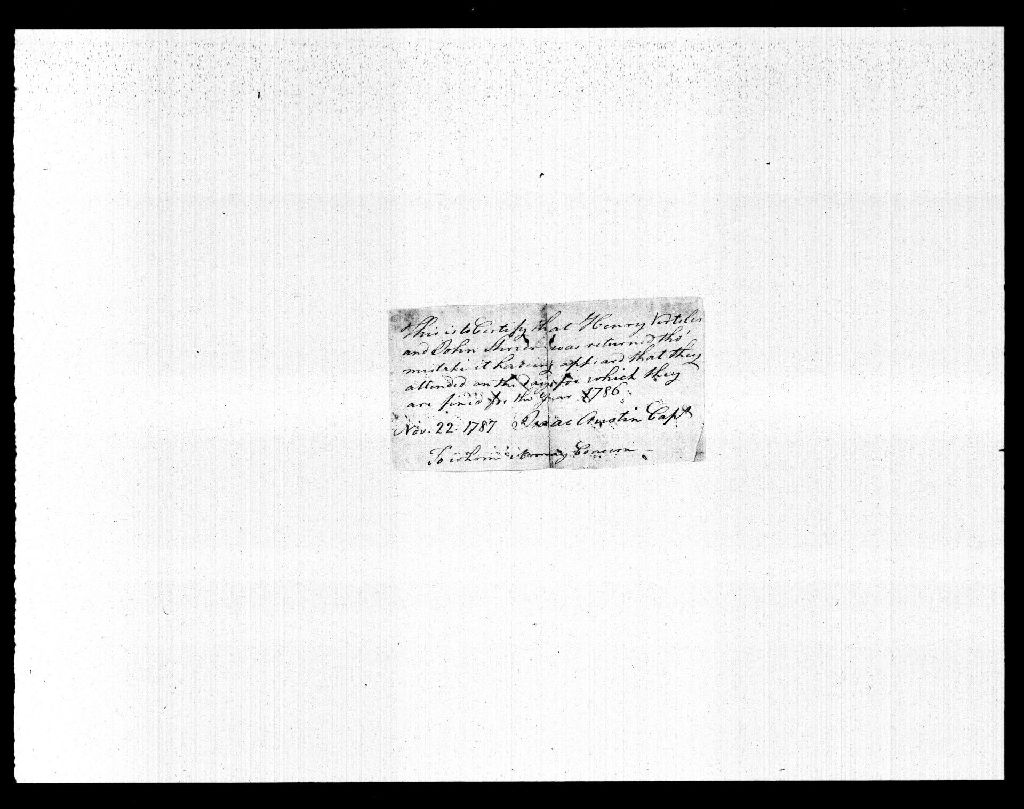 This is to Certify that Henry
and John was returned tho'
mistake it having appeard that they
attended on the Days for which they
are fined for the Year 1786
Nov. 22. 1787 Isaac Austin Capt
To whom it may Concern